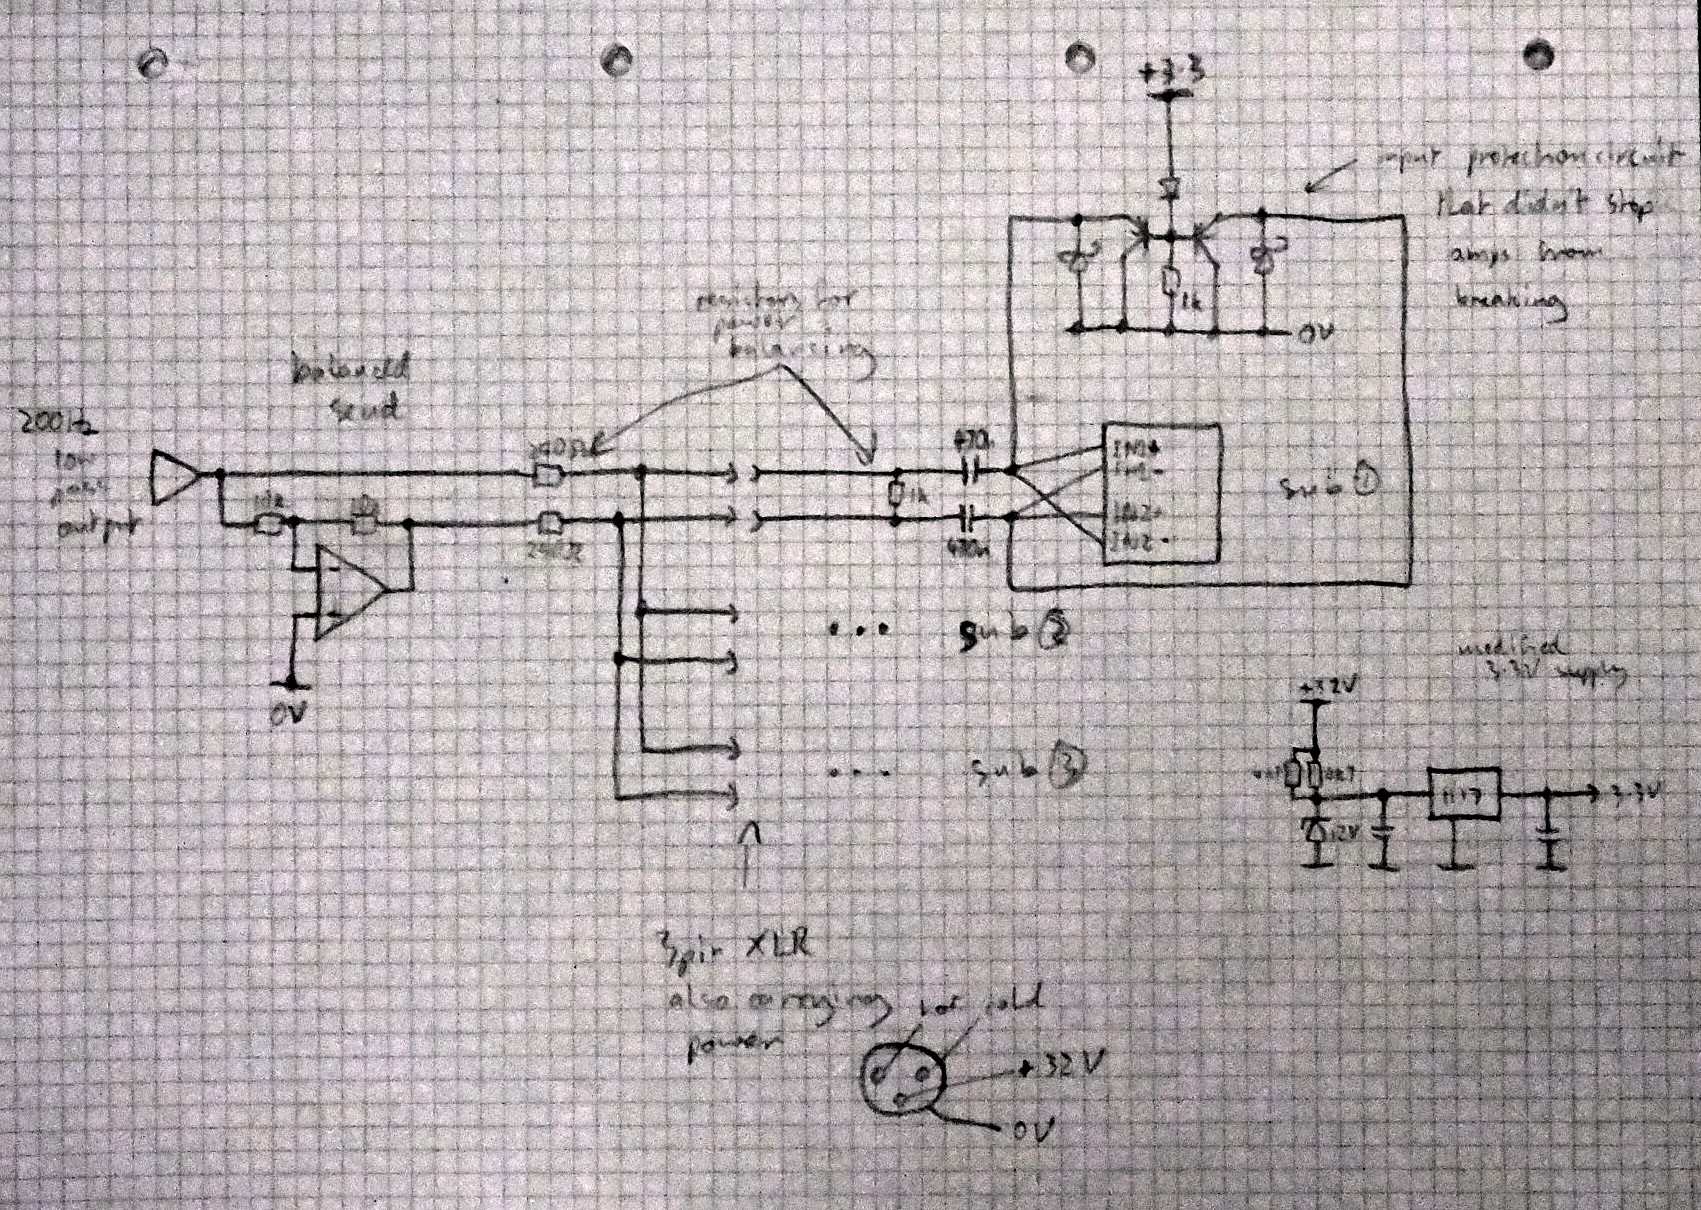 +3.3
input protection circuit
that didn't stop
amps from
breaking
1k
0V
resistors for
power
balancing
balanced
send
200Hz
low
pass
output
470n
IN1+
IN1-
IN2+
IN2-
1k
sub ①
470n
-
+
0V
... sub ②
... sub ③
modified
3.3V supply
+32V
12V
1117
3.3V
3pin XLR
also carrying
power
hot cold
+32V
0V